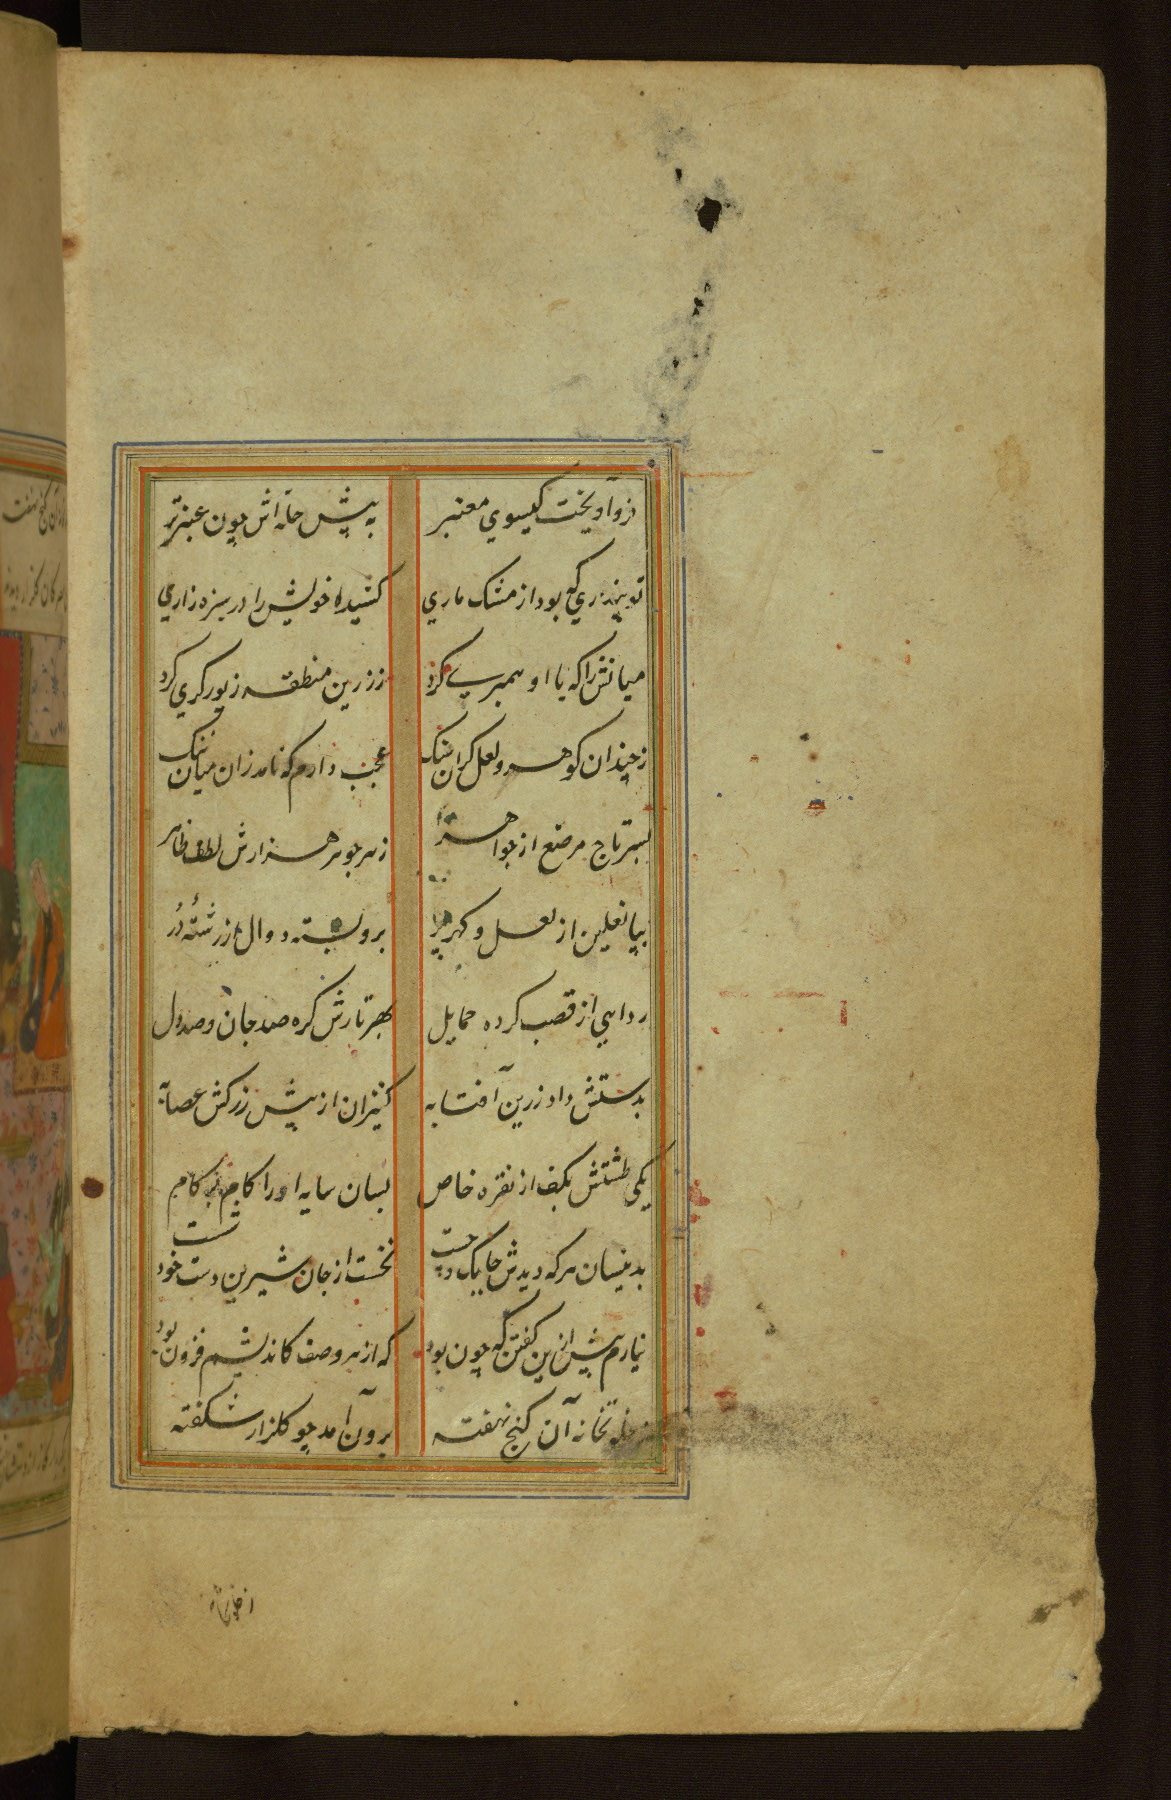 فروآویخت کیسوي معنبر به پیش حله اش چون عنبر تر
تو پنداري که بود از مشک ماري کشیده خویش را در سبزه زاري
میانش را که با او همسري کرد ز زرین منطقه زیور کري کرد
ز چندان کوهر و لعل کران سنک عجب دارم که نامد زان میان تنک
بسر تاج مرصع از جواهر ز هر جوهر هزارش لطف ظاهر
بپا نعلین از لعل و کهر پر برو بسته دوال از رشته در
ردایي از قصب کرده حمایل بهر تارش کره صد جان و صد دل
بدستش داد زرین آفتابه کنیزان از پیش زرکش عصابه
یکی طشتش بکف از نقره خام بسان سایه او را کام بر کام
بدینسان هر که دیدش چابک و چست نخست از جان شیرین دست خود شست
نیارم بیش ازین کفتن که چون بود که از هر وصف کاندیشم فزون بود
ز خلوتخانه آن کنج نهفته برون آمد چو کلزار شکفته